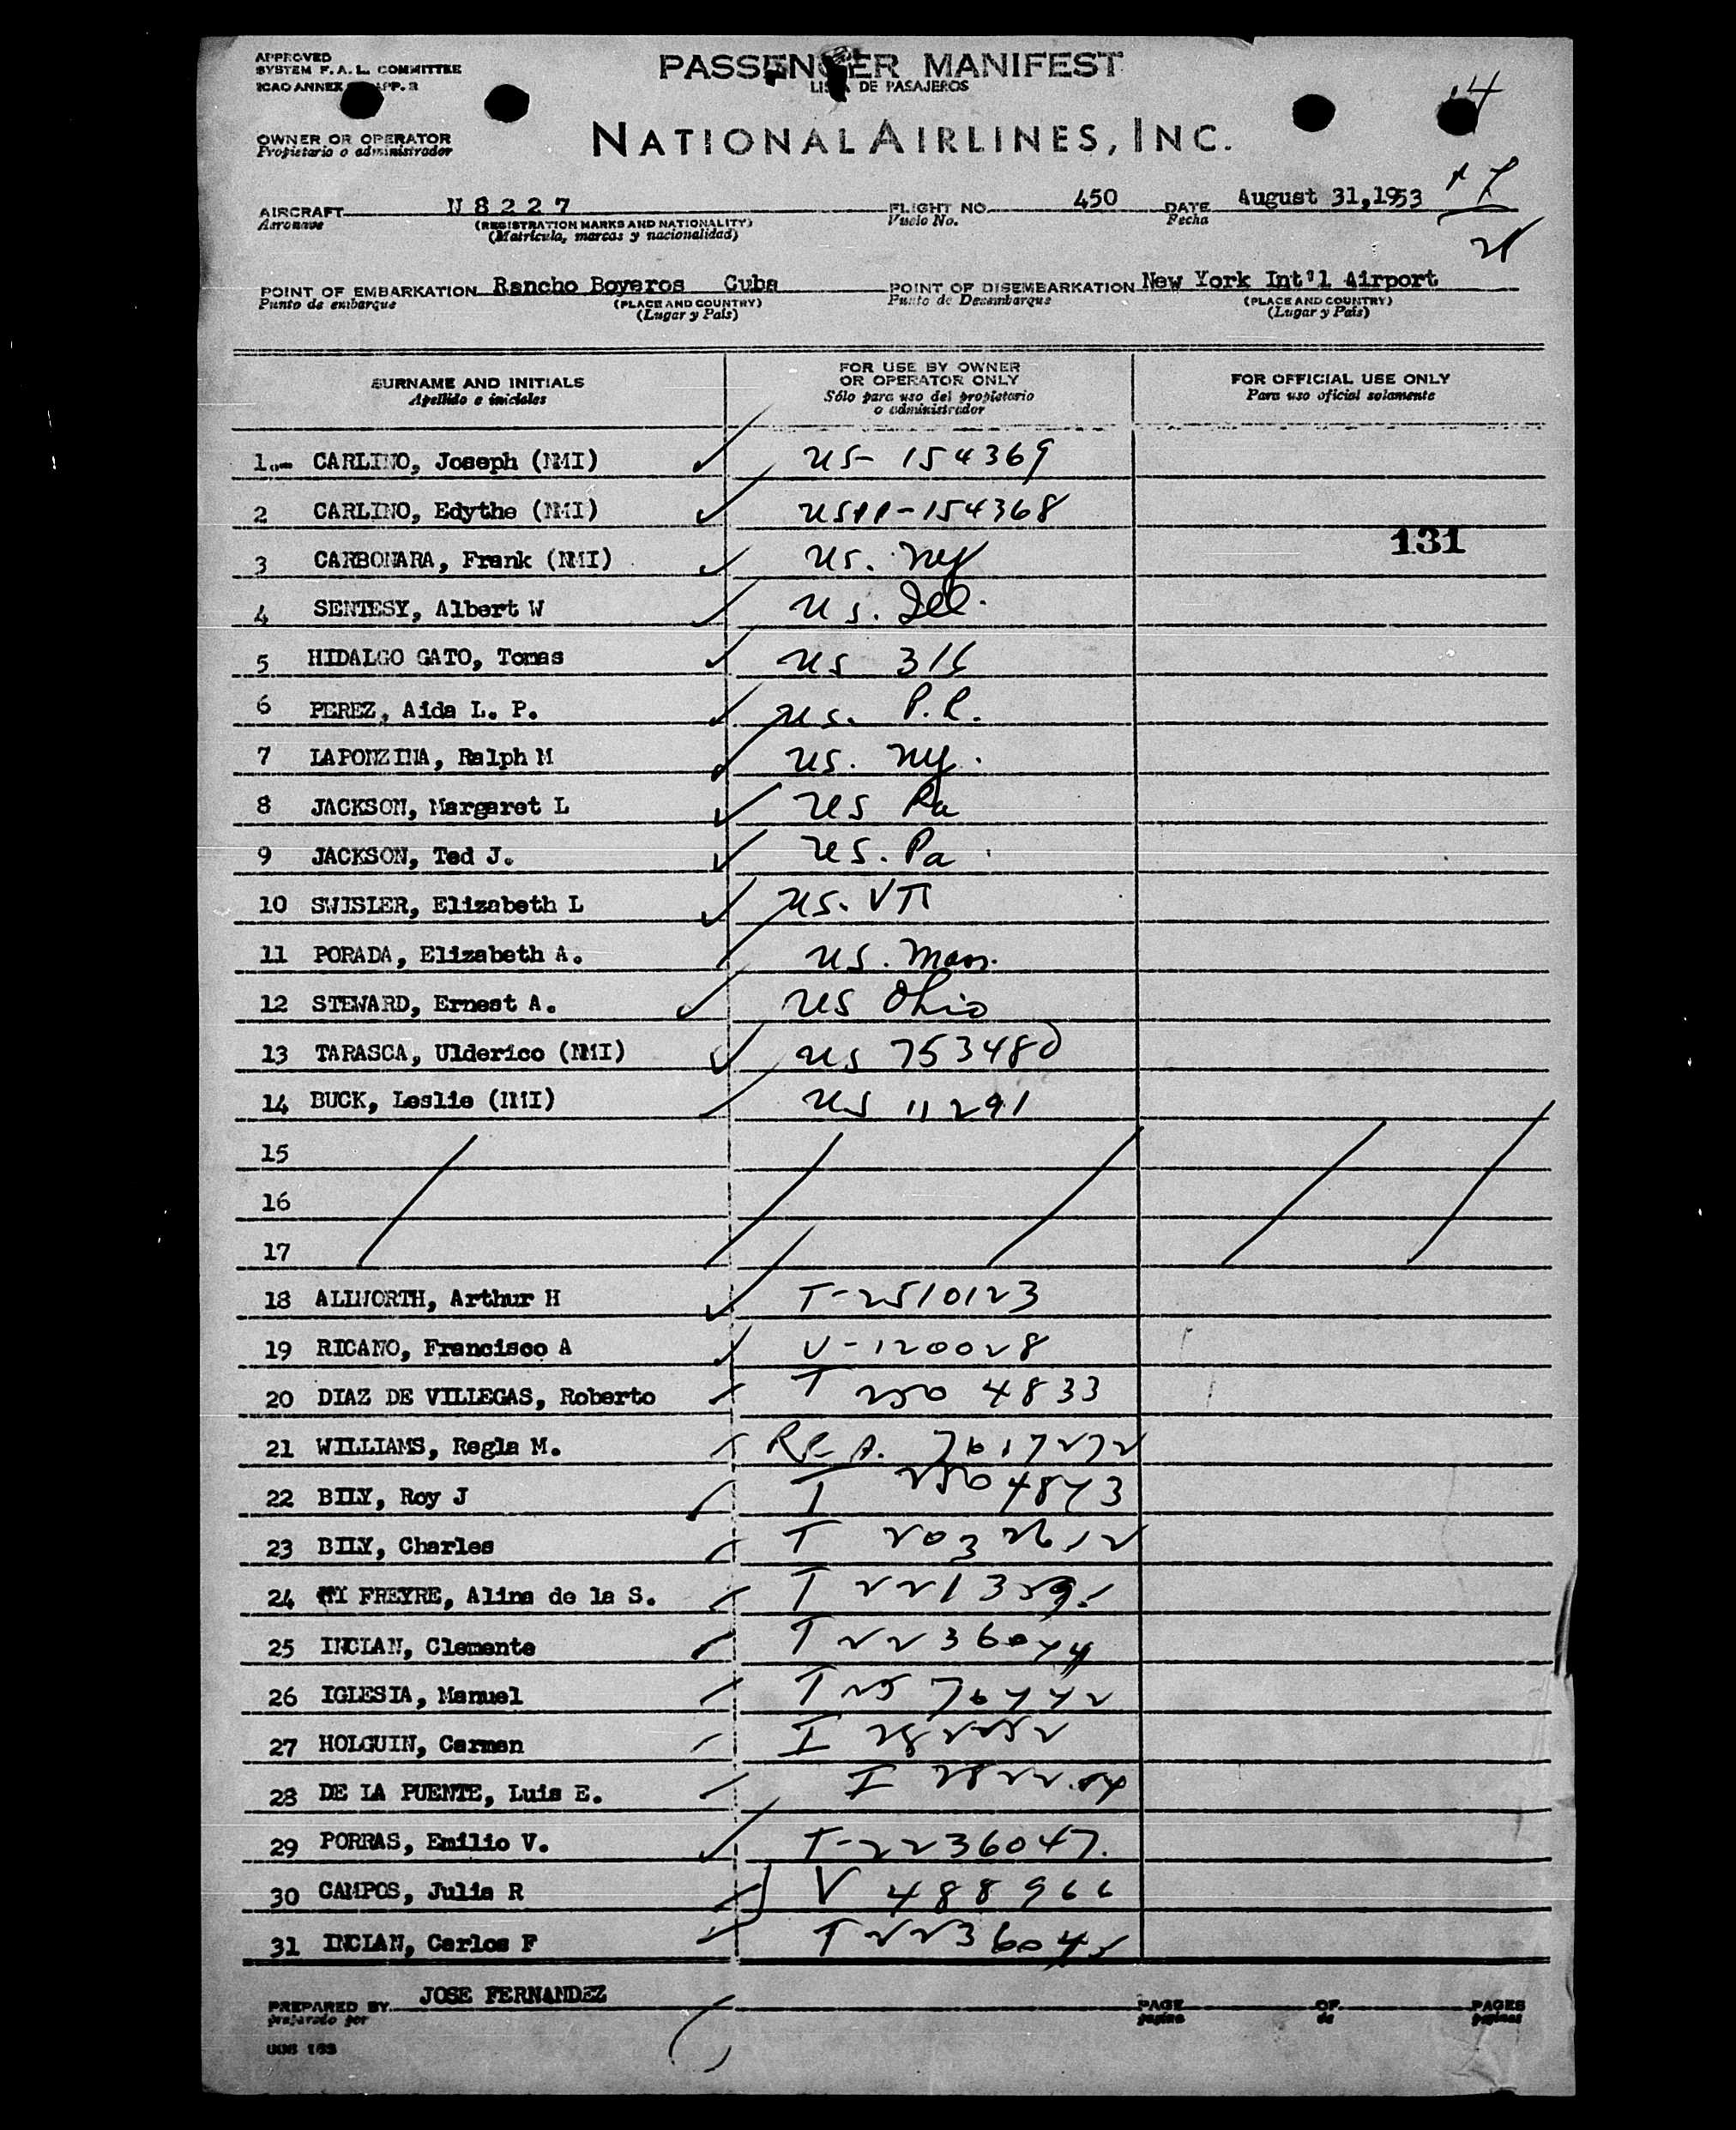 APPROVED
SYSTEM F. A. L. COMMITTEE
ICAO ANNEX APP. 2
PASSENGER MANIFEST
LISTA DE PASAJEROS
14
OWNER OR OPERATOR
Propietario o administrador
NATIONAL AIRLINES, INC.
AIRCRAFT N 8 2 2 7 FLIGHT NO. 450 DATE August 31,1953
Aeronave (REGISTRATION MARKS AND NATIONALITY) Vuelo No. Fecha
(Matrícula, marcas y nacionalidad)
POINT OF EMBARKATION Rancho Boyeros Cuba POINT OF DISEMBARKATION New York Int'l Airport
Punto de embarque (PLACE AND COUNTRY) Punto de Desembarque (PLACE AND COUNTRY)
(Lugar y País) (Lugar y País)
SURNAME AND INITIALS FOR USE BY OWNER OR OPERATOR ONLY FOR OFFICIAL USE ONLY
Apellido e iniciales Sólo para uso del propietario o administrador Para uso oficial solamente
1.- CARLINO, Joseph (NMI) US- 154369
2 CARLINO, Edythe (NMI) USPP-154368
131
3 CARBONARA, Frank (NMI) US. NY
4 SENTESY, Albert W US.
5 HIDALGO GATO, Tomas US 316
6 PEREZ, Aida L. P. US. P.R.
7 LAPONZINA, Ralph M US. NY.
8 JACKSON, Margaret L US Pa
9 JACKSON, Ted J. US. Pa
10 SWISLER, Elizabeth L US. VT
11 PORADA, Elizabeth A. US. Mass.
12 STEWARD, Ernest A. US Ohio
13 TARASCA, Ulderico (NMI) US 753480
14 BUCK, Leslie (NMI) US 11291
15
16
17
18 ALLWORTH, Arthur H T-2510123
19 RICANO, Francisco A V-120028
20 DIAZ DE VILLEGAS, Roberto T 250 4833
21 WILLIAMS, Regla M. 7617272
22 BILY, Roy J T 2504843
23 BILY, Charles T 2032612
24 FREYRE, Alina de la S. T
25 INCLAN, Clemente T 2236044
26 IGLESIA, Manuel T 2576442
27 HOLGUIN, Carmen I
28 DE LA PUENTE, Luis E. I
29 PORRAS, Emilio V. T-2236047.
30 CAMPOS, Julia R V 488966
31 INCLAN, Carlos F T 2236045
PREPARED BY JOSE FERNANDEZ PAGE OF PAGES
preparado por página de páginas